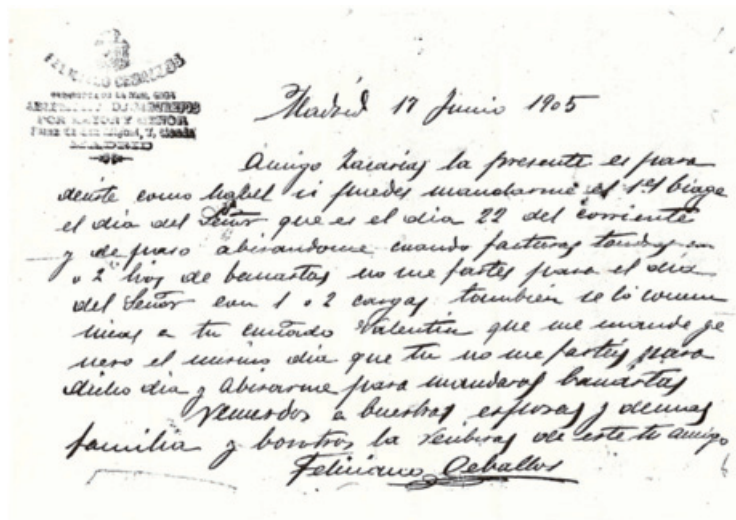 FELICIANO CEBALLOS
POR MAYOR Y MENOR
MADRID
Madrid 17 Junio 1905
Amigo Zacarias la presente es para
decirte como si puedes mandarme el 1er biage
el dia del Señor que es el dia 22 del corriente
y de paso abisandome cuando facturas
o 2 de banastas no me faltes para el dia
del Señor con 1 o 2 cargas tambien se lo comu
nicas a tu cuñado Valentin que me mande ge
nero el mismo dia que tu no me faltes para
dicho dia y abisarme para mandaros banastas
a buestras esposas y demas
familia y bosotros la de este tu amigo
Feliciano Ceballos